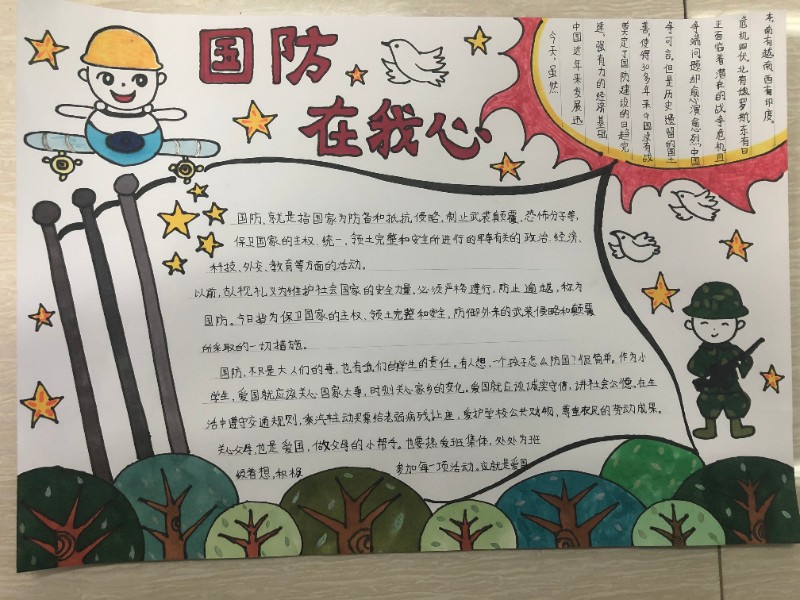 国防
在我心
今天,虽然
中国近年来发展迅
速,强有力的经济基础
奠定了国防建设的日趋完
善,使得30多年来中国没有战
争可言。但是历史遗留的国土
争端问题却愈演愈烈,中国
正面临着潜在的战争危机,且
危机四伏。北有俄罗斯,东有日
本,南有越南,西有印度。
国防,就是指国家为防备和抵抗侵略,制止武装颠覆,恐怖分子等,
保卫国家的主权、统一,领土完整和安全所进行的军事有关的政治、经济、
科技、外交、教育等方面的活动。
以前,古人视礼义为维护社会国家的安全力量,必须严格遵行,防止逾越,称为
国防。今日指为保卫国家的主权、领土完整和安全,防御外来的武装侵略和颠覆
所采取的一切措施。
国防,不只是大人们的事,也有我们的学生的责任。有人想,一个孩子怎么防国?很简单。作为小
学生,爱国就应该关心国家大事,时刻关心家乡的变化。爱国就应该诚实守信,讲社会公德。在生
活中遵守交通规则,乘汽车主动买票给老弱病残让座,爱护学校公共财物,尊重农民的劳动成果。
关心父母也是爱国,做父母的小帮手。也要热爱班集体,处处为班
级着想,积极 参加每一项活动。这就是爱国